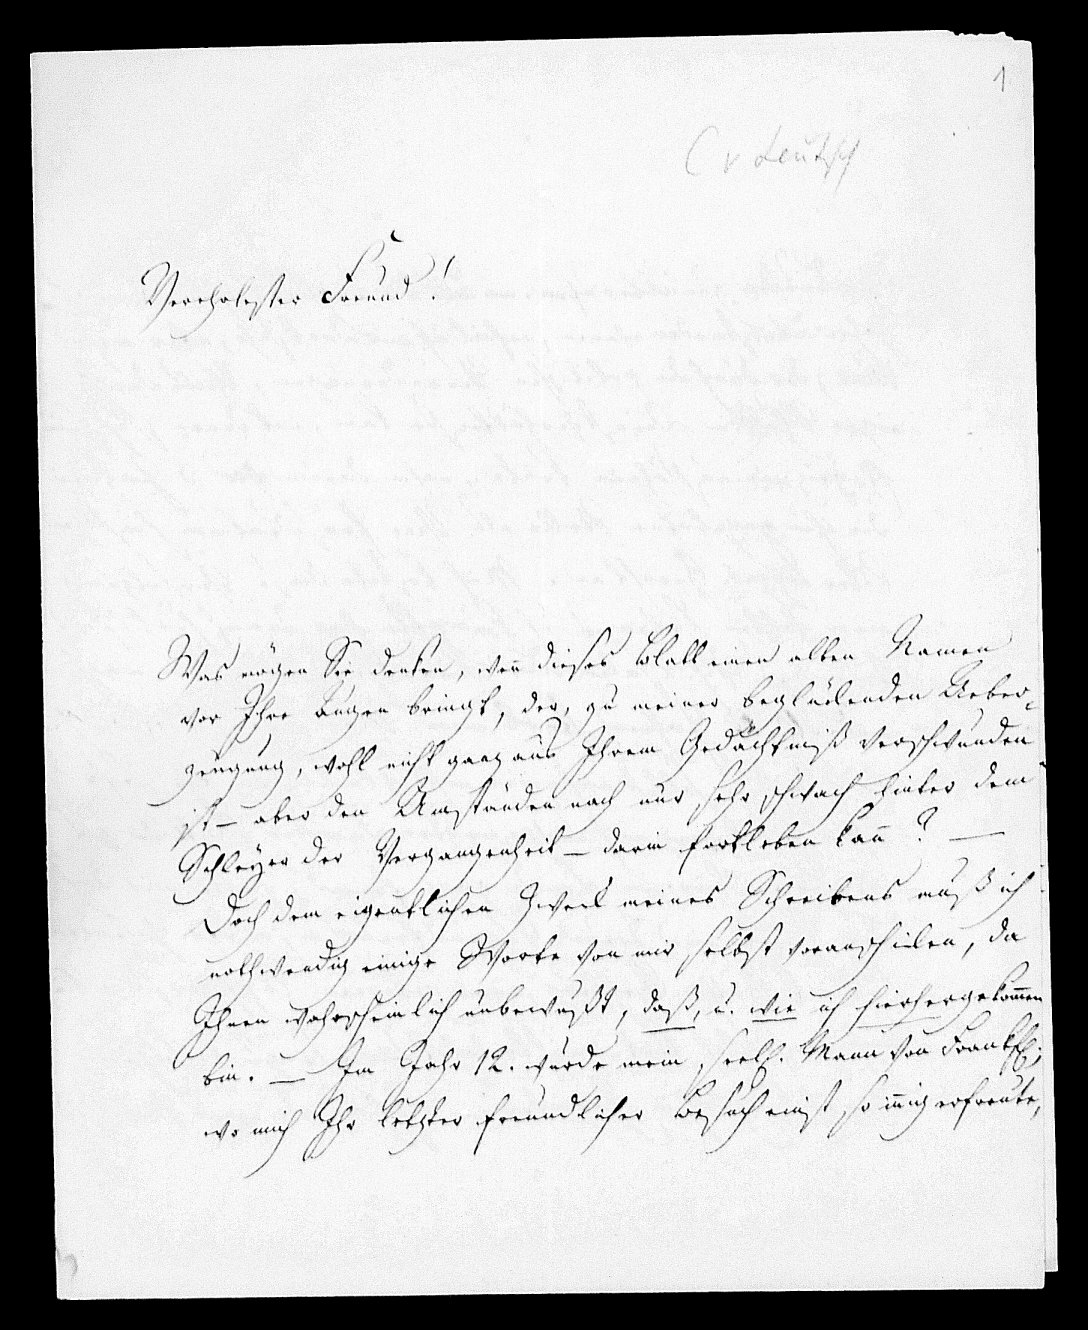 1
C v Deutsch
Verehrtester Freund!
Was mögen Sie denken, weñ dieses Blatt einen alten Namen
vor Ihre Augen bringt, der, zu meiner beglückenden Ueber-
zeugung, wohl nicht ganz aus Ihrem Gedächtniß verschwunden
ist – aber den Umständen nach nur sehr schwach hinter dem
Schleyer der Vergangenheit – darin fortleben kañ? —
Doch dem eigentlichen Zweck meines Schreibens muß ich
nothwendig einige Worte von mir selbst voranschicken, da
Ihnen wahrscheinlich unbewußt, daß, u. wie ich hierhergekom̃en
bin. — Im Jahr 12. wurde mein seel. Mann von Frankf,
wo mich Ihr letzter freundlicher Besuch einst so iñig erfreute,